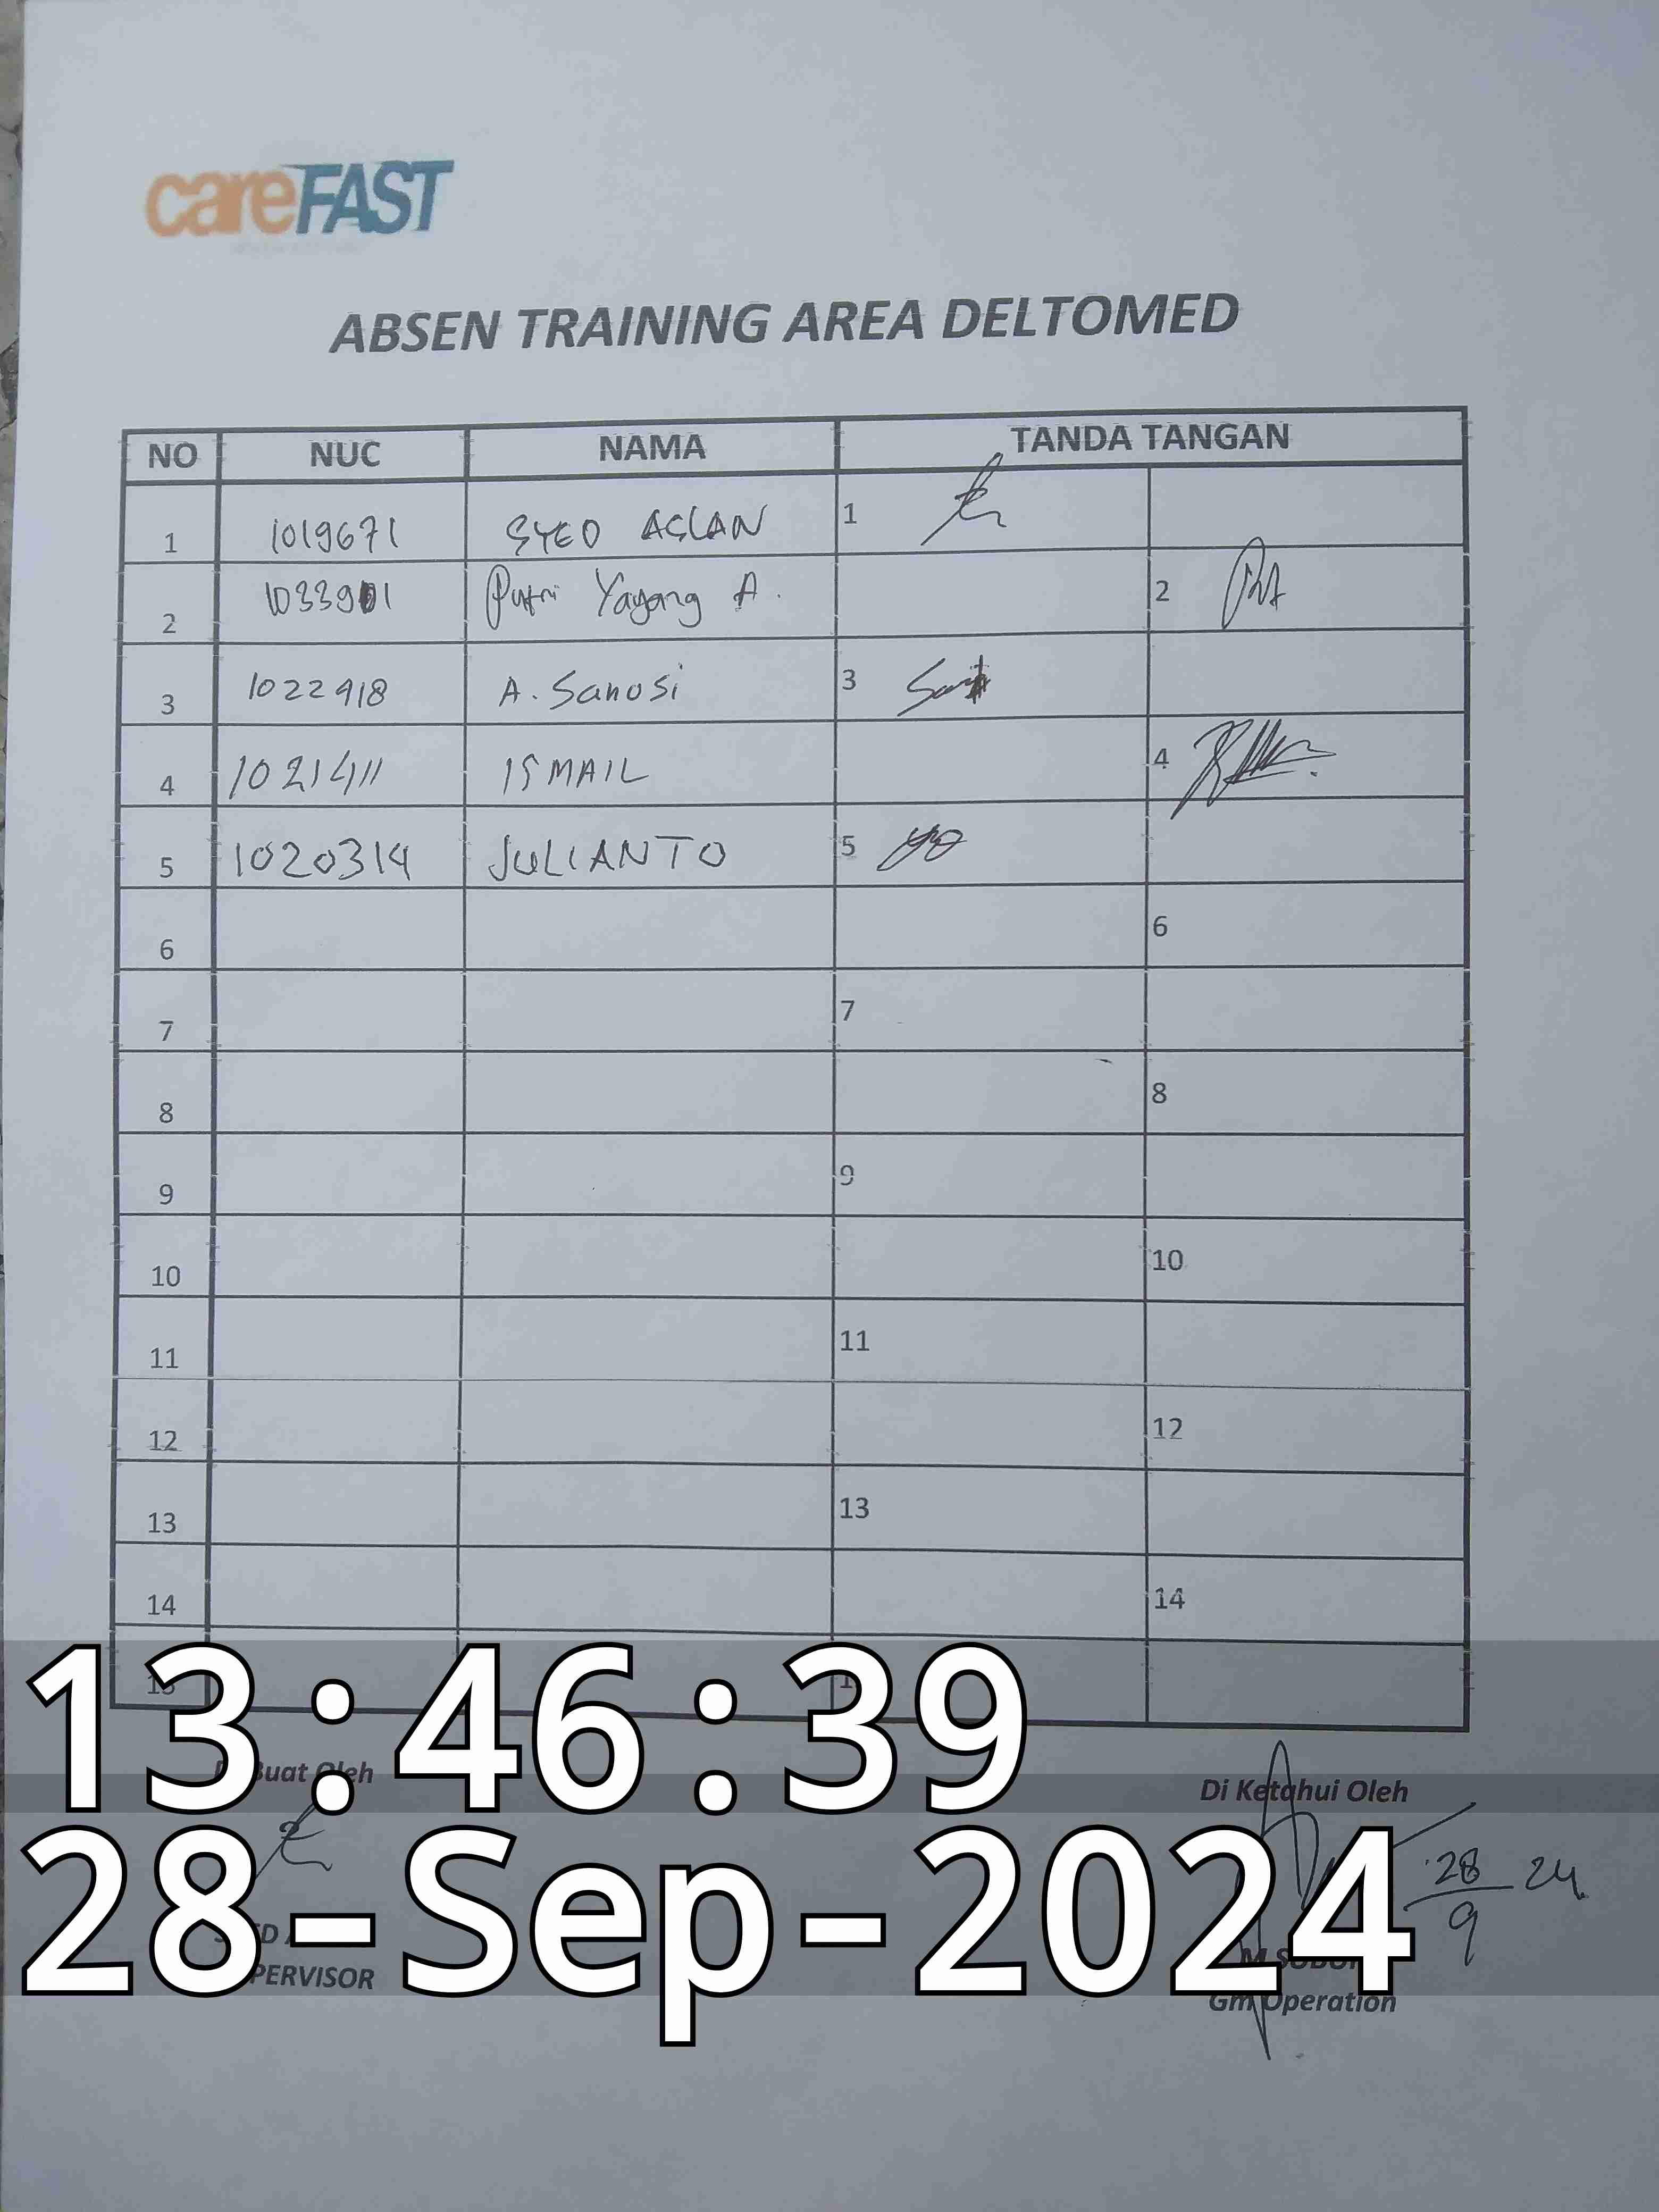 careFAST
ABSEN TRAINING AREA DELTOMED
NO NUC NAMA TANDA TANGAN
1 1019671 SYED ASLAN 1
2 Putri Yayang A. 2
3 1022918 A. Sanusi 3
4 1021411 ISMAIL 4
5 1020314 JULIANTO 5
6 6
7 7
8 8
9 9
10 10
11 11
12 12
13 13
14 14
15
13:46:39
Oleh Di Ketahui Oleh
28-Sep-2024
28/9 24
Gm Operation